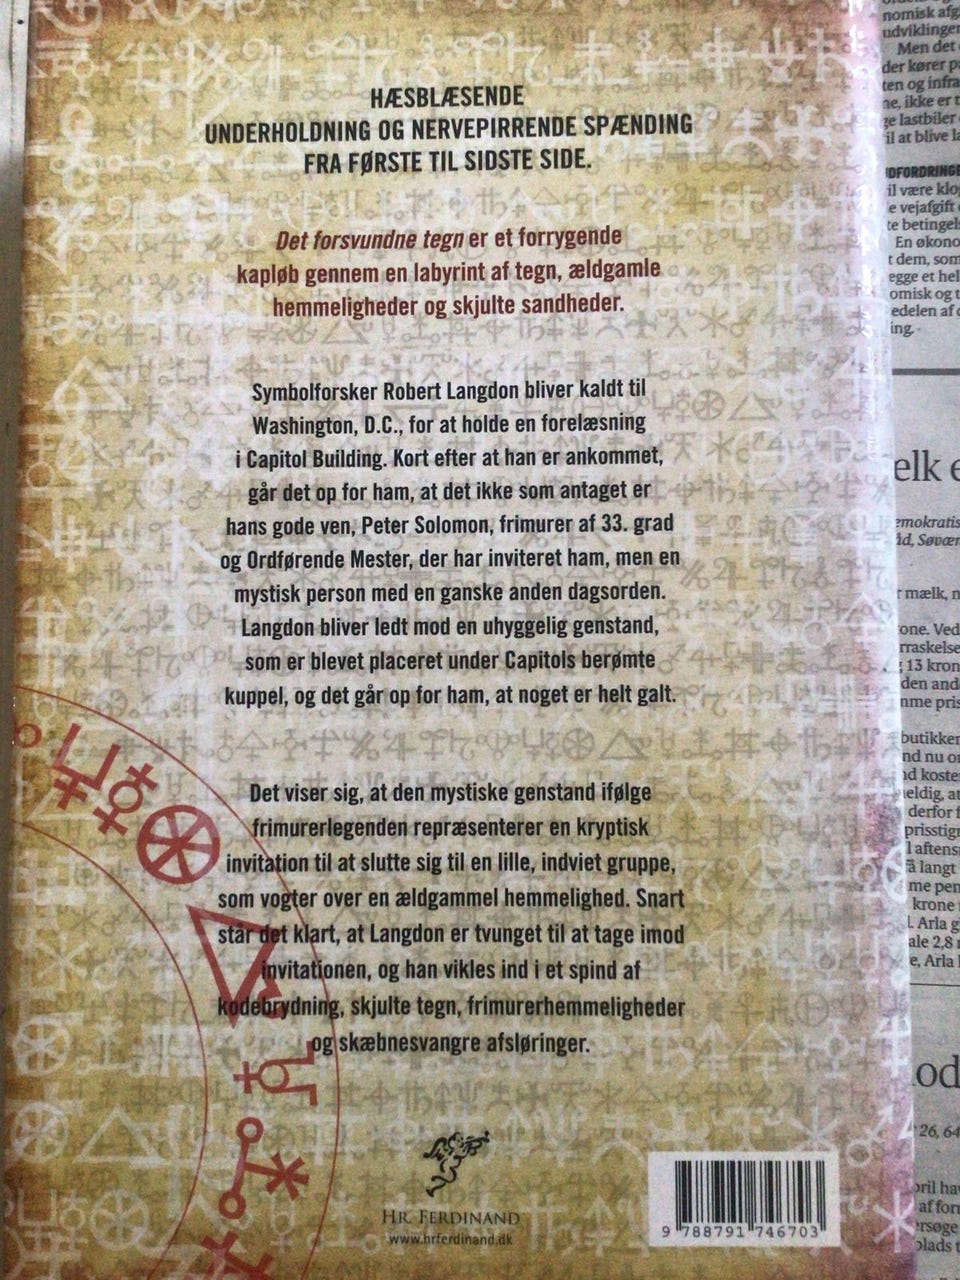 HÆSBLÆSENDE
UNDERHOLDNING OG NERVEPIRRENDE SPÆNDING
FRA FØRSTE TIL SIDSTE SIDE.
Det forsvundne tegn er et forrygende
kapløb gennem en labyrint af tegn, ældgamle
hemmeligheder og skjulte sandheder.
Symbolforsker Robert Langdon bliver kaldt til
Washington, D.C., for at holde en forelæsning
i Capitol Building. Kort efter at han er ankommet,
går det op for ham, at det ikke som antaget er
hans gode ven, Peter Solomon, frimurer af 33. grad
og Ordførende Mester, der har inviteret ham, men en
mystisk person med en ganske anden dagsorden.
Langdon bliver ledt mod en uhyggelig genstand,
som er blevet placeret under Capitols berømte
kuppel, og det går op for ham, at noget er helt galt.
Det viser sig, at den mystiske genstand ifølge
frimurerlegenden repræsenterer en kryptisk
invitation til at slutte sig til en lille, indviet gruppe,
som vogter over en ældgammel hemmelighed. Snart
står det klart, at Langdon er tvunget til at tage imod
invitationen, og han vikles ind i et spind af
kodebrydning, skjulte tegn, frimurerhemmeligheder
og skæbnesvangre afsløringer.
HR. FERDINAND
www.hrferdinand.dk
9 788791 746703
udviklingen
Men det
der kører
ten og infra
ne, ikke er
ge lastbiler
il at blive
il være
e vejafgift
te betingels
En økono
t dem, som
egge et hel
omisk og
edelen af
ing.
elk
emokratis
r mælk,
one. Ved
rraskelse
13 kron
den and
me pris
butikker
nd nu
d koste
eldig, at
derfor
prisstign
l aftens
å langt
me pen
krone
l. Arla
ale 2,8
e, Arla
od
26, 64
pril hav
af for
ersøge
plads